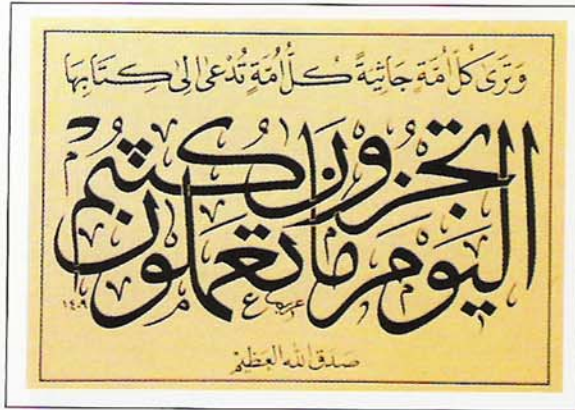 وَتَرَىٰ كُلَّ أُمَّةٍ جَاثِيَةً كُلُّ أُمَّةٍ تُدْعَىٰ إِلَىٰ كِتَابِهَا
اليَوْمَ تُجْزَوْنَ مَا كُنْتُمْ تَعْمَلُونَ
١٤٠٩
صدق الله العظيم